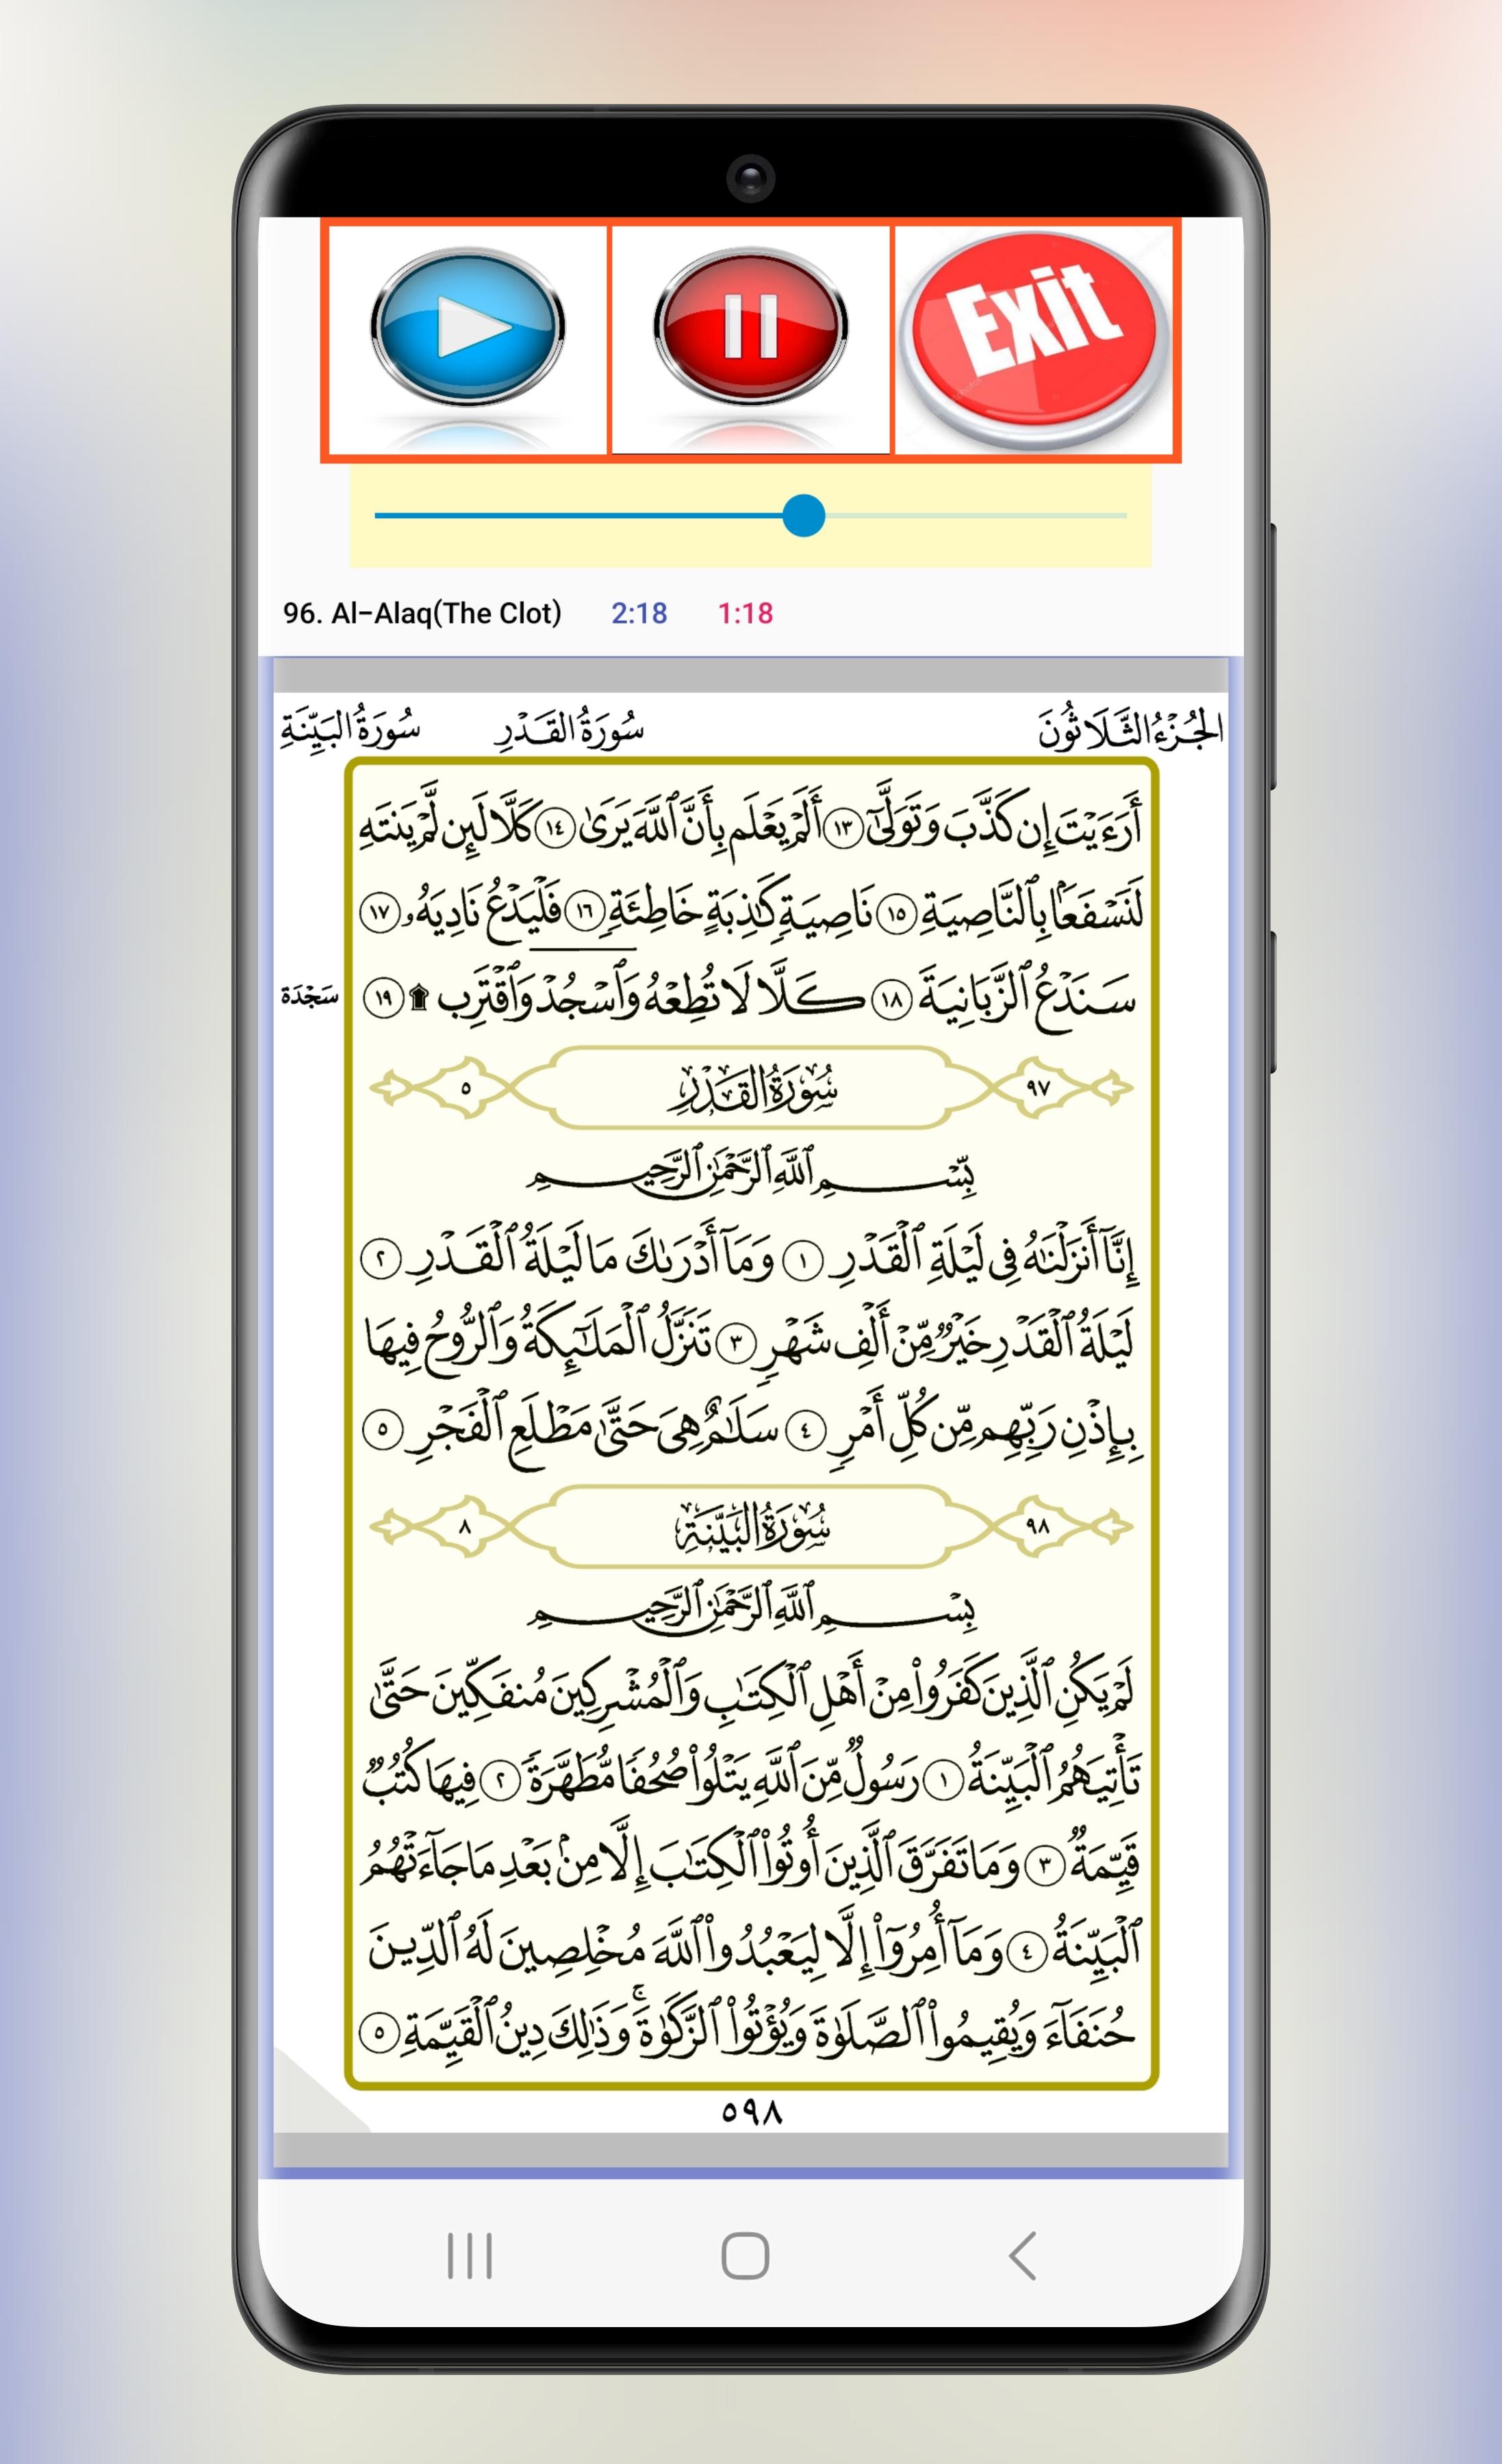 Exit
96. Al-Alaq(The Clot) 2:18 1:18
الجُزْءُ الثَّلَاثُونَ سُورَةُ القَدْرِ سُورَةُ البَيِّنَةِ
أَرَءَيْتَ إِن كَذَّبَ وَتَوَلَّىٰٓ ١٣ أَلَمْ يَعْلَم بِأَنَّ ٱللَّهَ يَرَىٰ ١٤ كَلَّا لَئِن لَّمْ يَنتَهِ
لَنَسْفَعًۢا بِٱلنَّاصِيَةِ ١٥ نَاصِيَةٍ كَٰذِبَةٍ خَاطِئَةٍ ١٦ فَلْيَدْعُ نَادِيَهُۥ ١٧
سَنَدْعُ ٱلزَّبَانِيَةَ ١٨ كَلَّا لَا تُطِعْهُ وَٱسْجُدْ وَٱقْتَرِب ۩ ١٩
سَجْدَة
٩٧ سُورَةُ القَدْرِ ٥
بِّسْمِ ٱللَّهِ ٱلرَّحْمَٰنِ ٱلرَّحِيمِ
إِنَّآ أَنزَلْنَٰهُ فِى لَيْلَةِ ٱلْقَدْرِ ١ وَمَآ أَدْرَىٰكَ مَا لَيْلَةُ ٱلْقَدْرِ ٢
لَيْلَةُ ٱلْقَدْرِ خَيْرٌ مِّنْ أَلْفِ شَهْرٍ ٣ تَنَزَّلُ ٱلْمَلَٰٓئِكَةُ وَٱلرُّوحُ فِيهَا
بِإِذْنِ رَبِّهِم مِّن كُلِّ أَمْرٍ ٤ سَلَٰمٌ هِىَ حَتَّىٰ مَطْلَعِ ٱلْفَجْرِ ٥
٩٨ سُورَةُ البَيِّنَةِ ٨
بِسْمِ ٱللَّهِ ٱلرَّحْمَٰنِ ٱلرَّحِيمِ
لَمْ يَكُنِ ٱلَّذِينَ كَفَرُوا۟ مِنْ أَهْلِ ٱلْكِتَٰبِ وَٱلْمُشْرِكِينَ مُنفَكِّينَ حَتَّىٰ
تَأْتِيَهُمُ ٱلْبَيِّنَةُ ١ رَسُولٌ مِّنَ ٱللَّهِ يَتْلُوا۟ صُحُفًا مُّطَهَّرَةً ٢ فِيهَا كُتُبٌ
قَيِّمَةٌ ٣ وَمَا تَفَرَّقَ ٱلَّذِينَ أُوتُوا۟ ٱلْكِتَٰبَ إِلَّا مِنۢ بَعْدِ مَا جَآءَتْهُمُ
ٱلْبَيِّنَةُ ٤ وَمَآ أُمِرُوٓا۟ إِلَّا لِيَعْبُدُوا۟ ٱللَّهَ مُخْلِصِينَ لَهُ ٱلدِّينَ
حُنَفَآءَ وَيُقِيمُوا۟ ٱلصَّلَوٰةَ وَيُؤْتُوا۟ ٱلزَّكَوٰةَ ۚ وَذَٰلِكَ دِينُ ٱلْقَيِّمَةِ ٥
٥٩٨